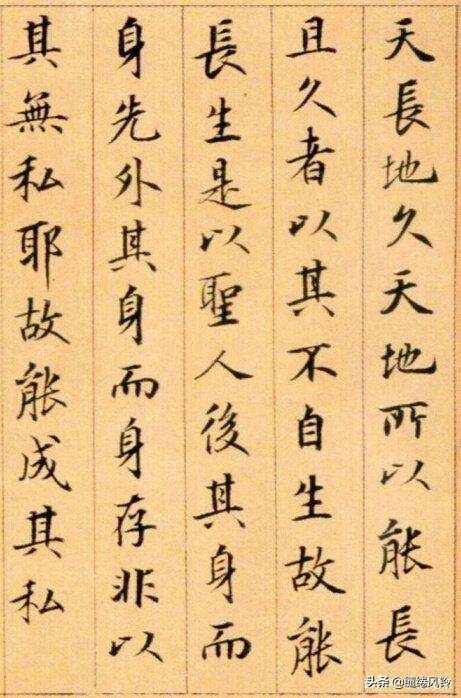 天長地久天地所以能長
且久者以其不自生故能
長生是以聖人後其身而
身先外其身而身存非以
其無私耶故能成其私
头条 @繾绻风聆